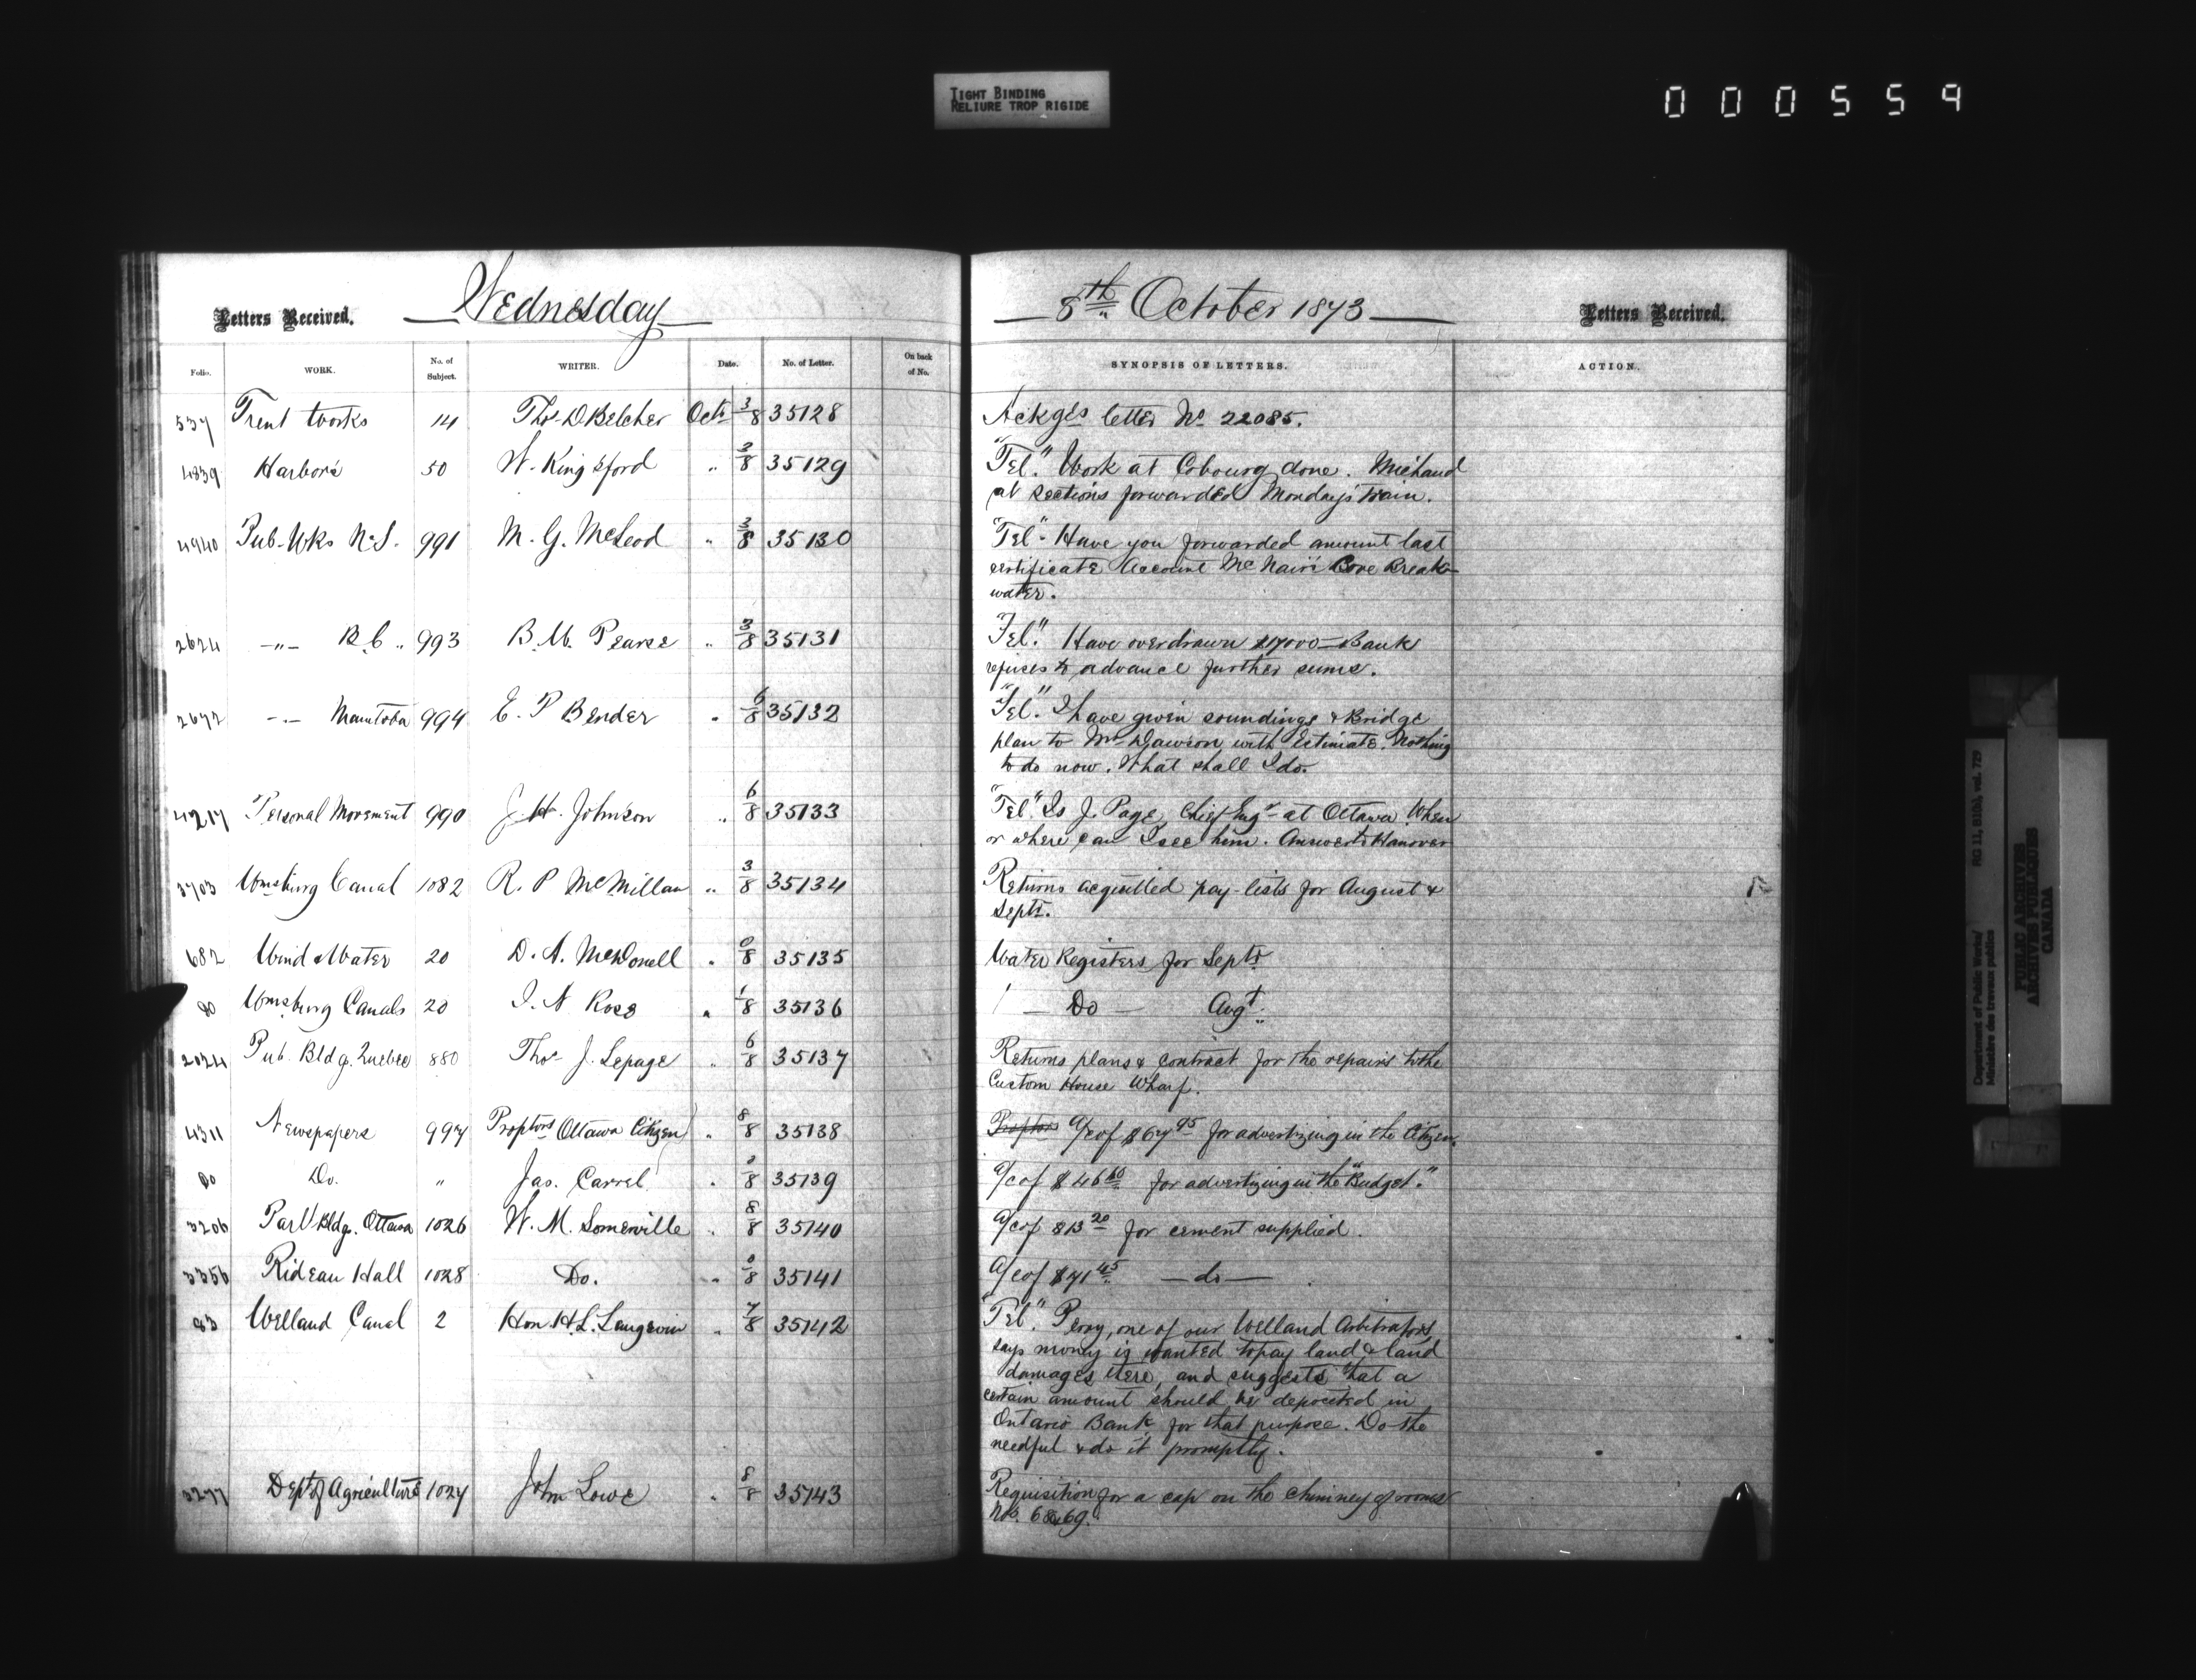 TIGHT BINDING
RELIURE TROP RIGIDE
000559
Letters Received. Wednesday
Folio. WORK. No. of Subject. WRITER. Date. No. of Letter. On back of No.
537 Trent Works 14 Thos D Belcher Octr 3/8 35128
4839 Harbors 50 W. Kingsford " 3/8 35129
4940 Pub. Wks N.S. 991 M. G. McLeod " 3/8 35130
2624 -"- B.C " 993 B. W. Pearse " 3/8 35131
2672 -"- Manitoba 994 E. P Bender " 6/8 35132
4217 Personal Movement 990 J. H. Johnson " 6/8 35133
3703 Wmsburg Canal 1082 R. P McMillan " 3/8 35134
682 Wind & Water 20 D. A. McDonell " 35135
Do Wmsburg Canals 20 I. N Rose " 1/8 35136
2024 Pub. Bldg. Quebec 880 Thos J. Lepage " 6/8 35137
4311 Newspapers 997 Proptors Ottawa Citizen " 8/8 35138
Do Do. " Jas. Carrel " 35139
3206 Parlt Bldgs. Ottawa 1026 W. M. Somerville " 8/8 35140
3356 Rideau Hall 1028 Do. " 35141
83 Welland Canal 2 Hon. H.L. Langevin " 7/8 35142
3277 Dept of Agriculture 1027 John Lowe " 8/8 35143
8th October 1873 Letters Received.
SYNOPSIS OF LETTERS. ACTION.
Ackges letter No 22085.
"Tel." Work at Cobourg done. Michaud
at sections forwarded Monday's train.
"Tel." Have you forwarded amount last
certificate Account McNair's Cove Break-
water.
"Tel." Have overdrawn $17000 – Bank
refuses to advance further sums.
"Tel." I have given soundings & Bridge
plan to Mr Dawson with Estimate. Nothing
to do now. What shall I do.
"Tel." Is J. Page, Chief Engr at Ottawa. When
or where can I see him. Answer to Hanover
Returns acquitted pay-lists for August &
Septr.
Water Registers for Septr
— Do — Augt.
Returns plans & contract for the repairs to the
Custom House Wharf.
Proptors a/c of $67 95 for advertizing in the Citizen.
a/c of $46 60 for advertizing in the "Budget."
a/c of $13 20 for cement supplied.
a/c of $71 45 — do —
"Tel." Perry, one of our Welland Arbitrators,
says money is wanted to pay land & land
damages there, and suggests that a
certain amount should be deposited in
Ontario Bank for that purpose. Do the
needful & do it promptly.
Requisition for a cap on the chimney of rooms
Nos. 68 & 69.
Department of Public Works/
Ministère des travaux publics
RG 11, B1(b), vol. 729
PUBLIC ARCHIVES
ARCHIVES PUBLIQUES
CANADA